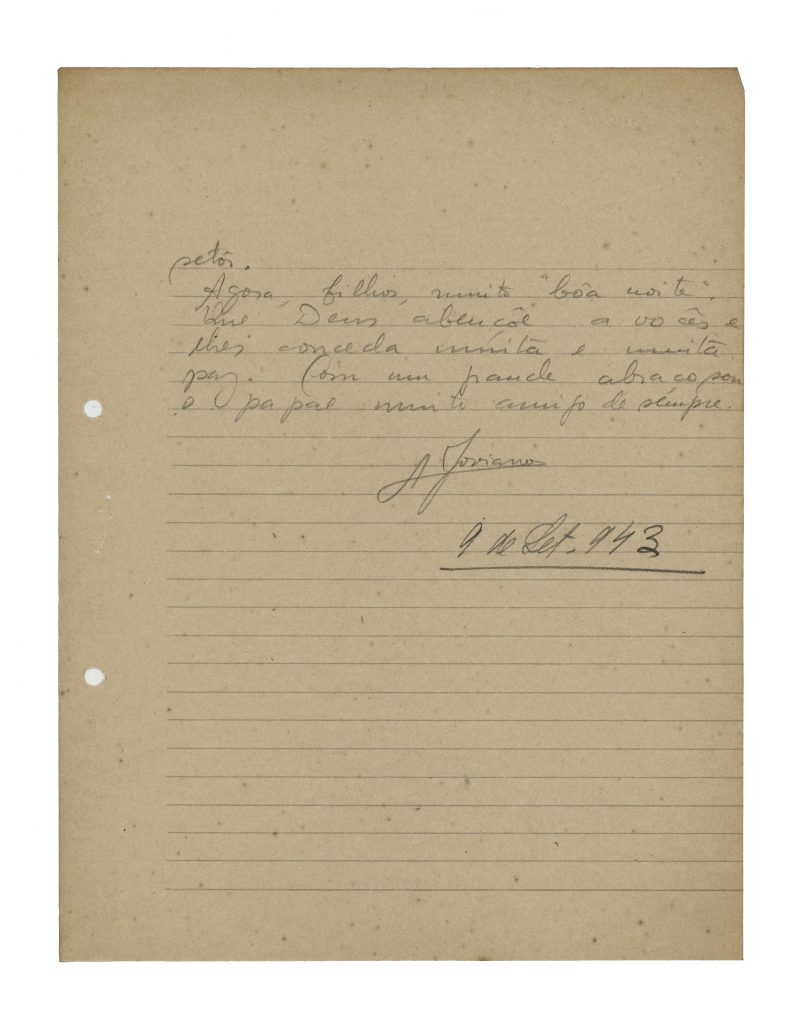 setôr.
Agora, filhos, muito "bôa noite".
Que Deus abençôe a vocês e
lhes conceda muita e muita
paz. Com um grande abraço, sou
o papae muito amigo de sempre.
A Joviano
9 de Set. 943